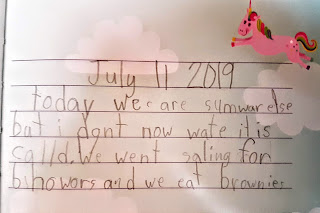 July 11 2019
today we are sumwar else
but i dont now wate it is
calld. We went saling for
2 howors and we eat brownies